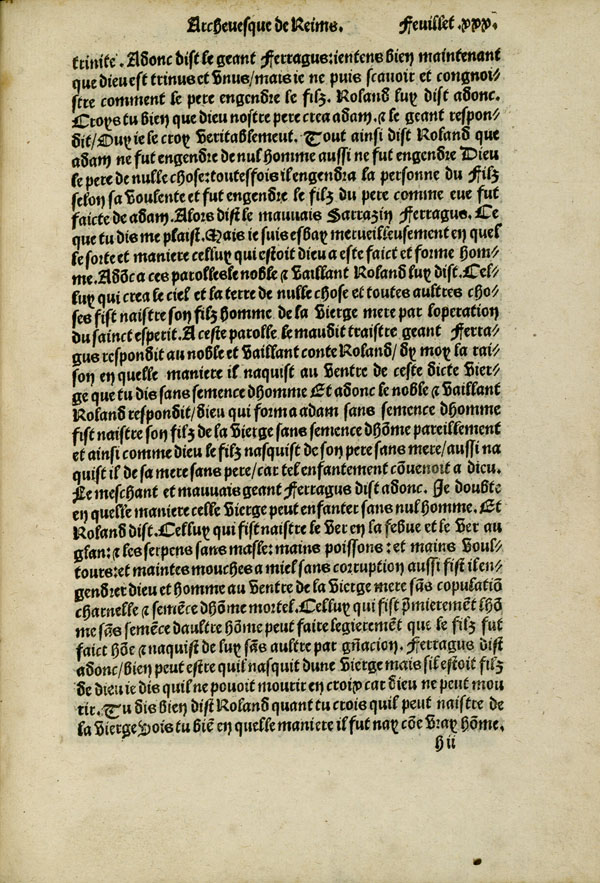 Archevesque de Reims. Feuillet .xxx.
trinite. Adonc dist le geant Ferragus:ientens bien maintenant
que dieu est trinus et vnus/mais ie ne puis scauoir et congnoi⸗
stre comment le pere engendre le filz. Roland luy dist adonc.
Croys tu bien que dieu nostre pere crea adam.⁊ le geant respon⸗
dit/Ouy ie le croy veritablement. Tout ainsi dist Roland que
adam ne fut engendre de nul homme aussi ne fut engendre Dieu
le pere de nulle chose:toutesfois il engendra la personne du Filz
selon sa voulente et fut engendre le filz du pere comme eue fut
faicte de adam. Alors dist le mauuais Sarrazin Ferragus. Ce
que tu dis me plaist. Mais ie suis esbay merueilleusement en quel
le sorte et maniere celluy qui estoit dieu a este faict et forme hom⸗
me. Adōc a ces parolles le noble ⁊ vaillant Roland luy dist. Cel⸗
luy qui crea le ciel et la terre de nulle chose et toutes aultres cho⸗
ses fist naistre son filz homme de la vierge mere par loperation
du sainct esperit. A ceste parolle le maudit traistre geant Ferra⸗
gus respondit au noble et vaillant conte Roland/dy moy la rai⸗
son en quelle maniere il naquist au ventre de ceste dicte vier⸗
ge que tu dis sans semence dhomme Et adonc le noble ⁊ vaillant
Roland respondit/dieu qui forma adam sans semence dhomme
fist naistre son filz de la vierge sans semence dhōme pareillement
et ainsi comme dieu le filz nasquist de son pere sans mere/aussi na
quist il de sa mere sans pere/car tel enfantement cōuenoit a dieu.
Le meschant et mauuais geant Ferragus dist adonc. Je doubte
en quelle maniere celle vierge peut enfanter sans nul homme. Et
Roland dist. Celluy qui fist naistre le ver en la febue et le ver au
glan:⁊ les serpens sans masle: mains poissons : et mains voul⸗
tours:et maintes mouches a miel sans corruption aussi fist il en⸗
gendrer dieu et homme au ventre de la vierge mere sās copulatiō
charnelle ⁊ semēce dhōme mortel. Celluy qui fist p̄mieremēt lhō
me sās semēce daultre hōme peut faire legieremēt que le filz fut
faict hōe ⁊ naquist de luy sās aultre par gn̄acion. Ferragus dist
adonc/bien peut estre quil nasquit dune vierge mais sil estoit filz
de dieu ie dis quil ne pouoit mourir en croix car dieu ne peut mou
rir. Tu dis bien dist Roland quant tu crois quil peut naistre de
la vierge vois tu biē en quelle maniere il fut nay cōe vray hōme.
h ii